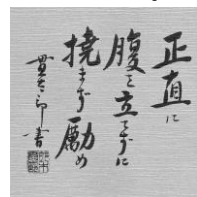 正直に
腹を立てずに
撓まず励め
貫太郎書